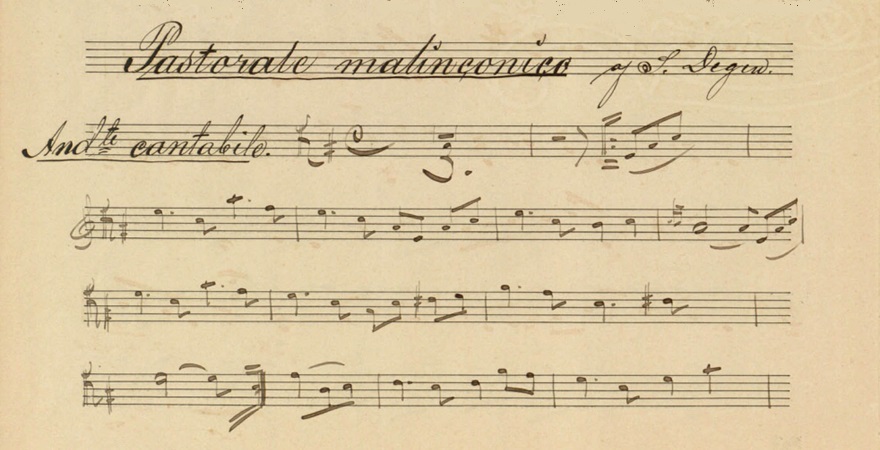 Pastorale malinconico
And.te cantabile.